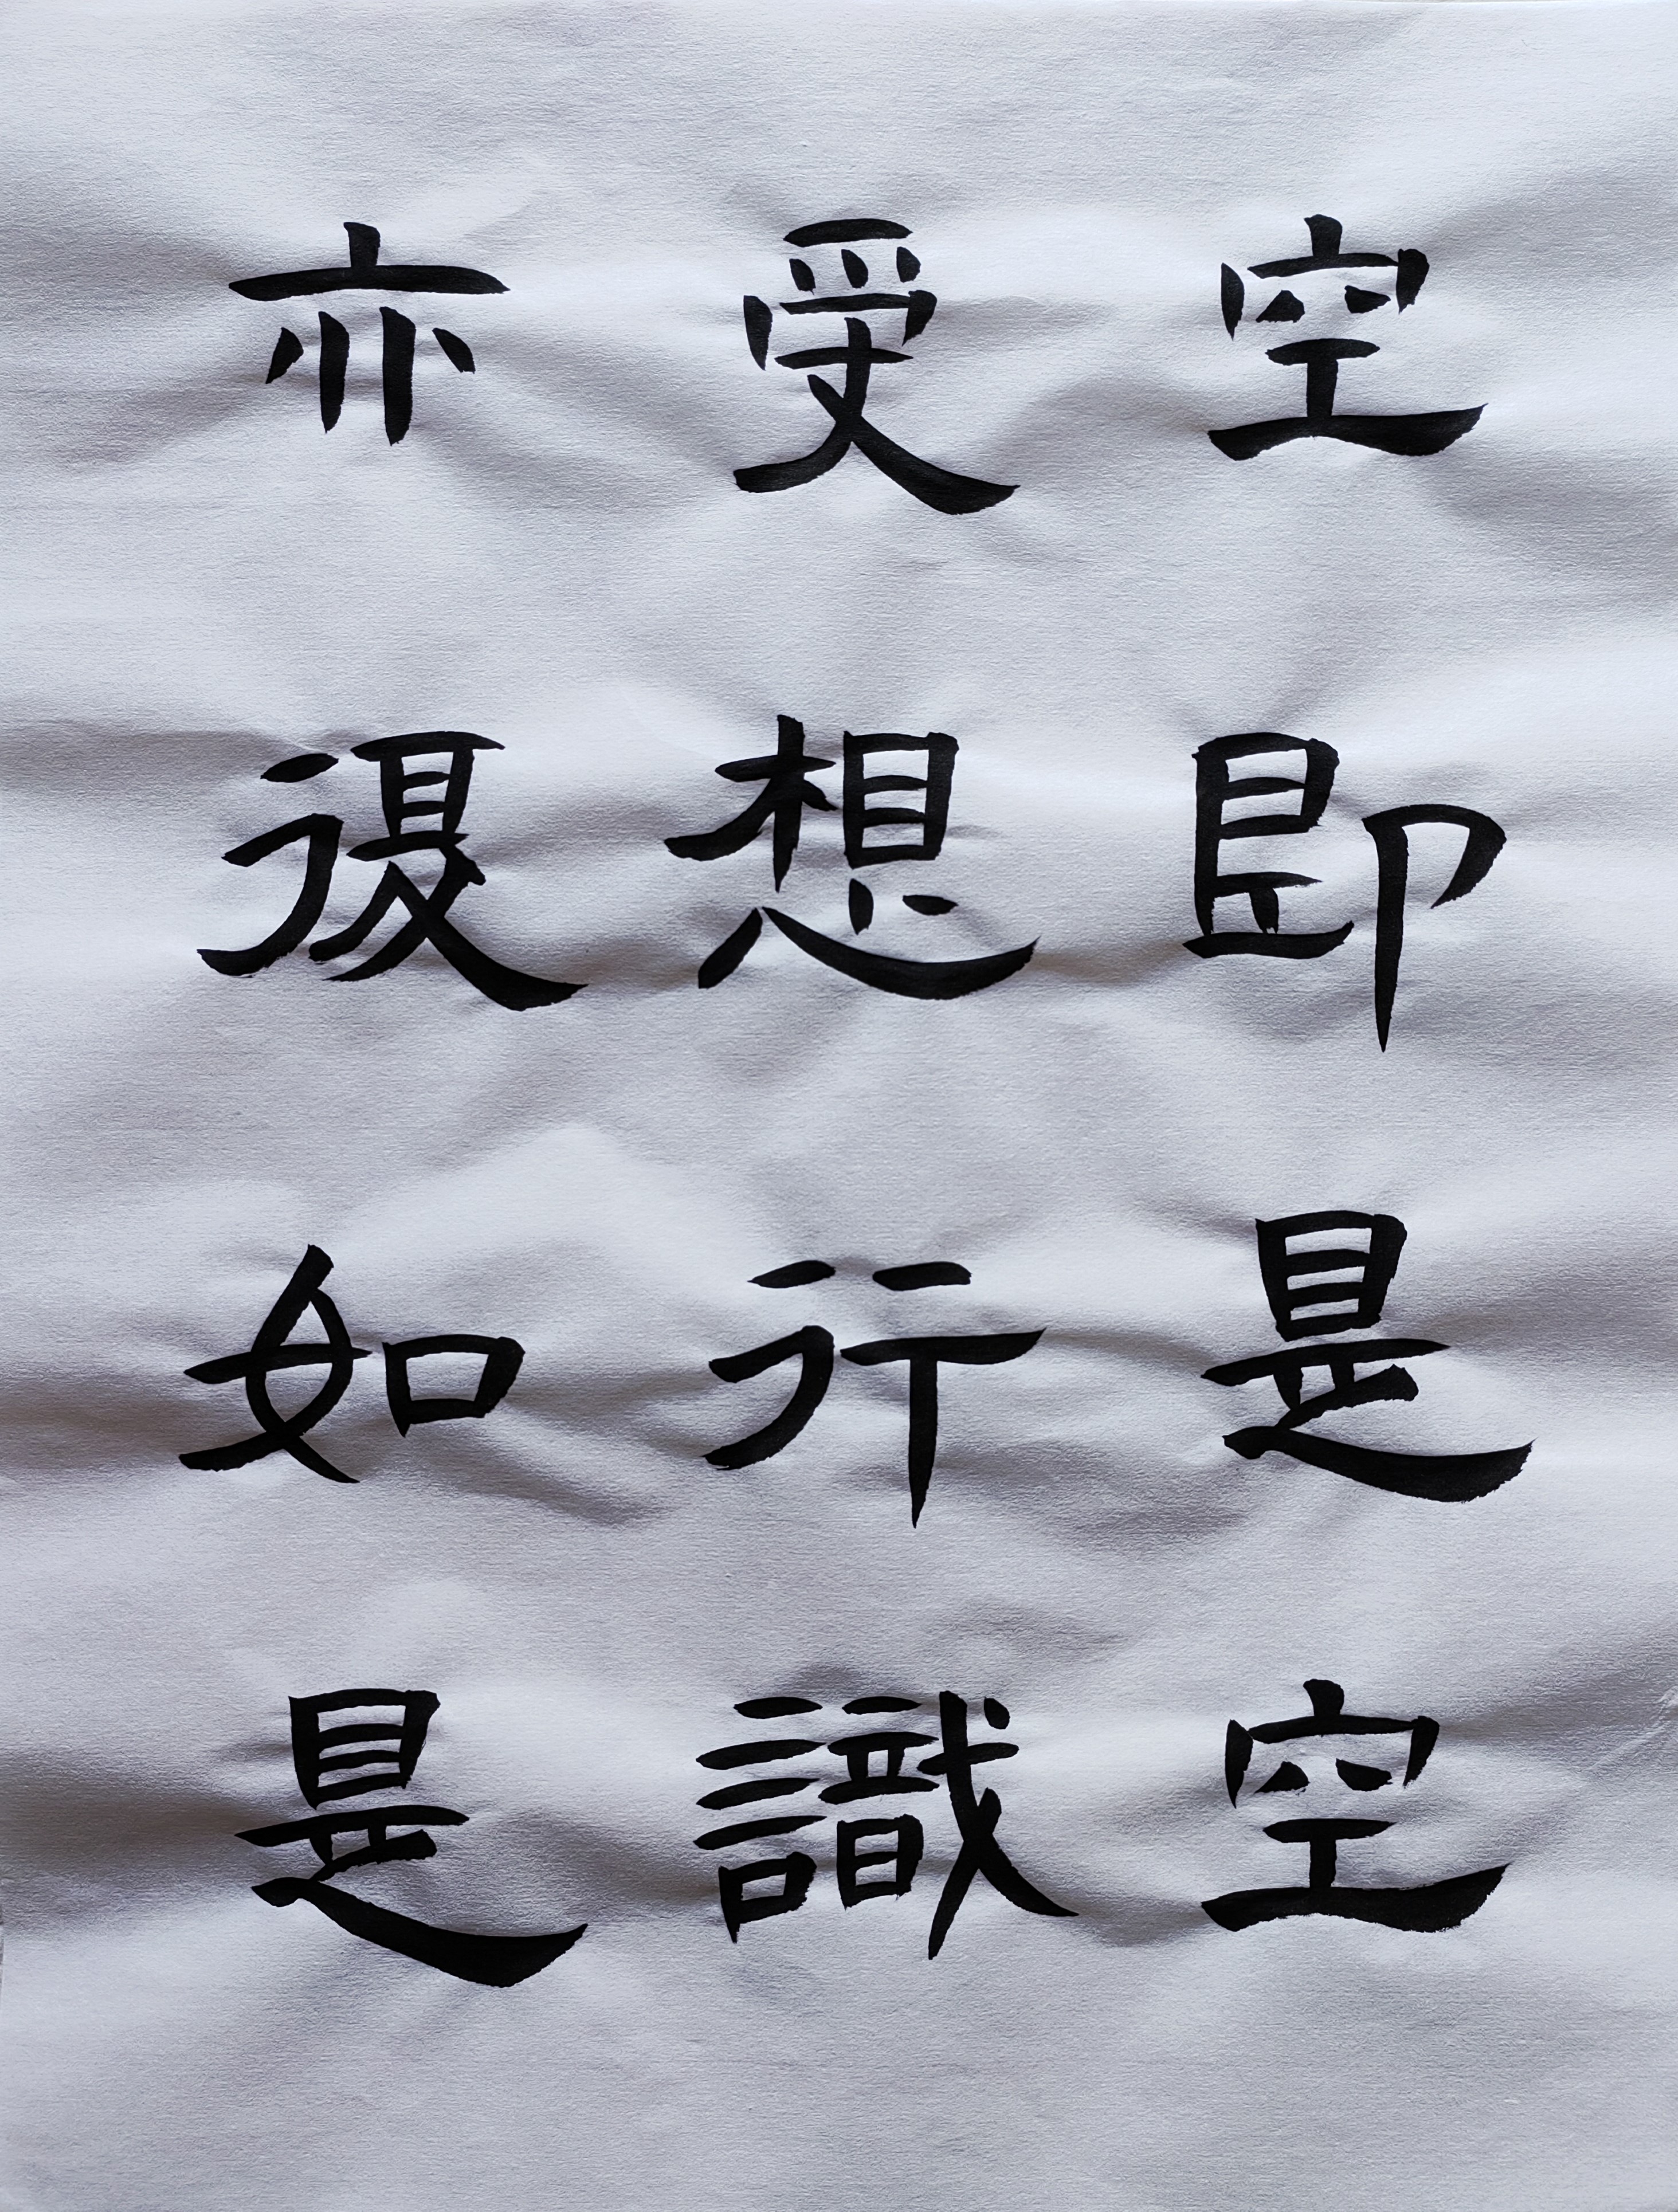 空即是空
受想行識
亦復如是